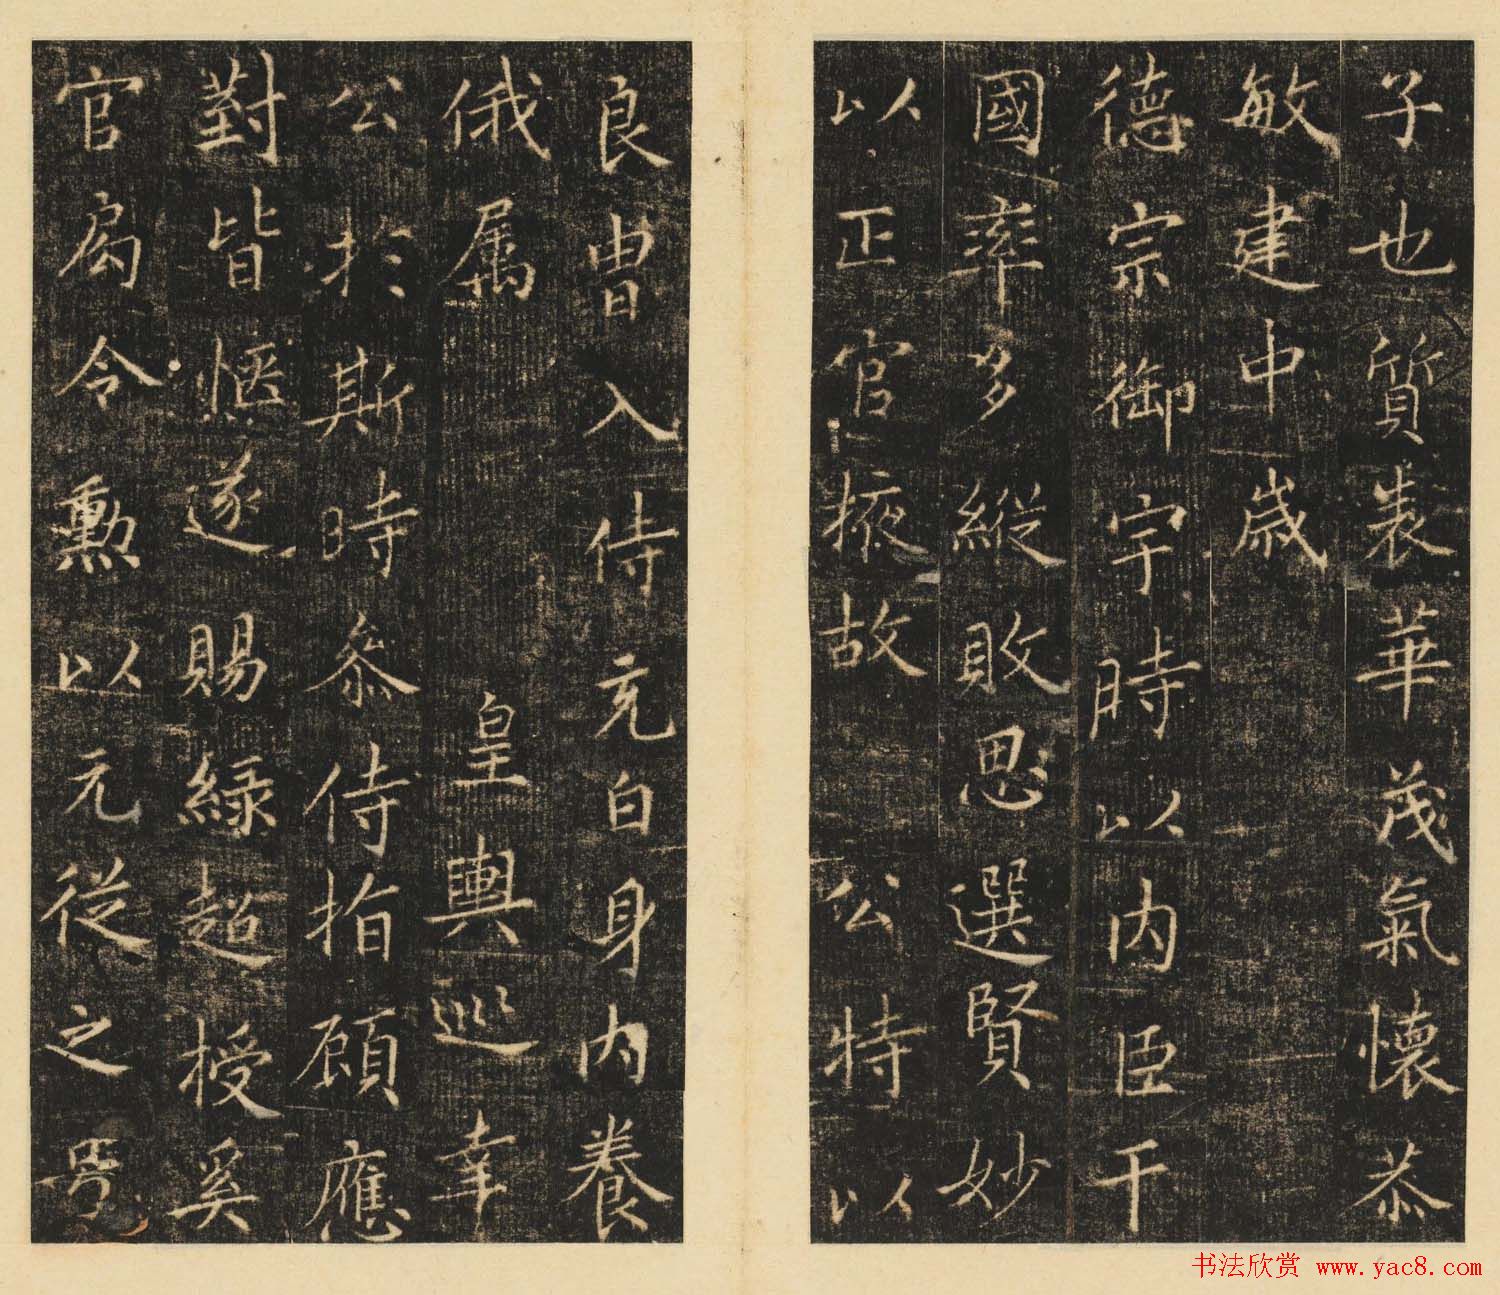 子也質裁華茂氣懷恭
敏建中歲
德宗御宇時以内臣干
國率多縱敗思選賢妙
以正官掖故公特以
良胄入侍充白身内養
俄属皇輿巡幸
公於斯時参侍指顧應
對皆愜遂賜緑超授奚
官局令勲以元從之号
书法欣赏 www.yac8.com